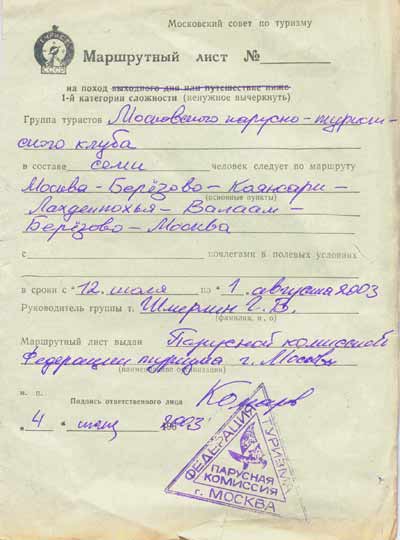 Московский совет по туризму
ТУРИСТ
СССР
Маршрутный лист №
на поход выходного дня или путешествие ниже
1-й категории сложности (ненужное вычеркнуть)
Группа туристов Московского парусно-туристи-
ского клуба
в составе семи человек следует по маршруту
Москва - Берёзово - Каянсари -
(основные пункты)
Лахденпохья - Валаам -
Берёзово - Москва
с ночлегами в полевых условиях
в сроки с "12 июля по "1 августа 2003
Руководитель группы т. Шмерлин Г. В.
(фамилия, и., о)
Маршрутный лист выдан Парусной комиссией
Федерации туризма г. Москвы
(наименование организации)
м. п.
Подпись ответственного лица
"4" 2003
ФЕДЕРАЦИЯ
ТУРИЗМА
ПАРУСНАЯ
КОМИССИЯ
г. МОСКВА